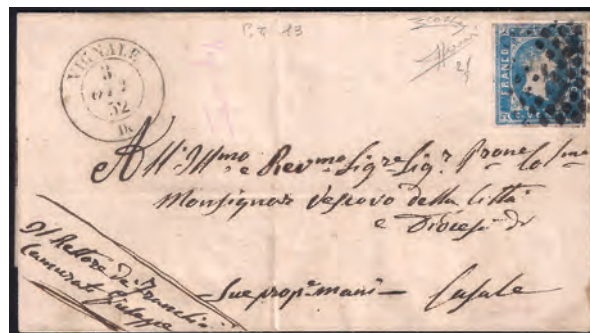 P.ti 13
VIGNALE
3
OTT
52
D.
FRANCO
All'Ill.mo e Rev.mo Sig.re Sig.r Prone Col.mo
Monsignor Vescovo della Città
e Diocesi di
Sue prop.e mani Casale
Il Rettore di
Camurati Giuseppe